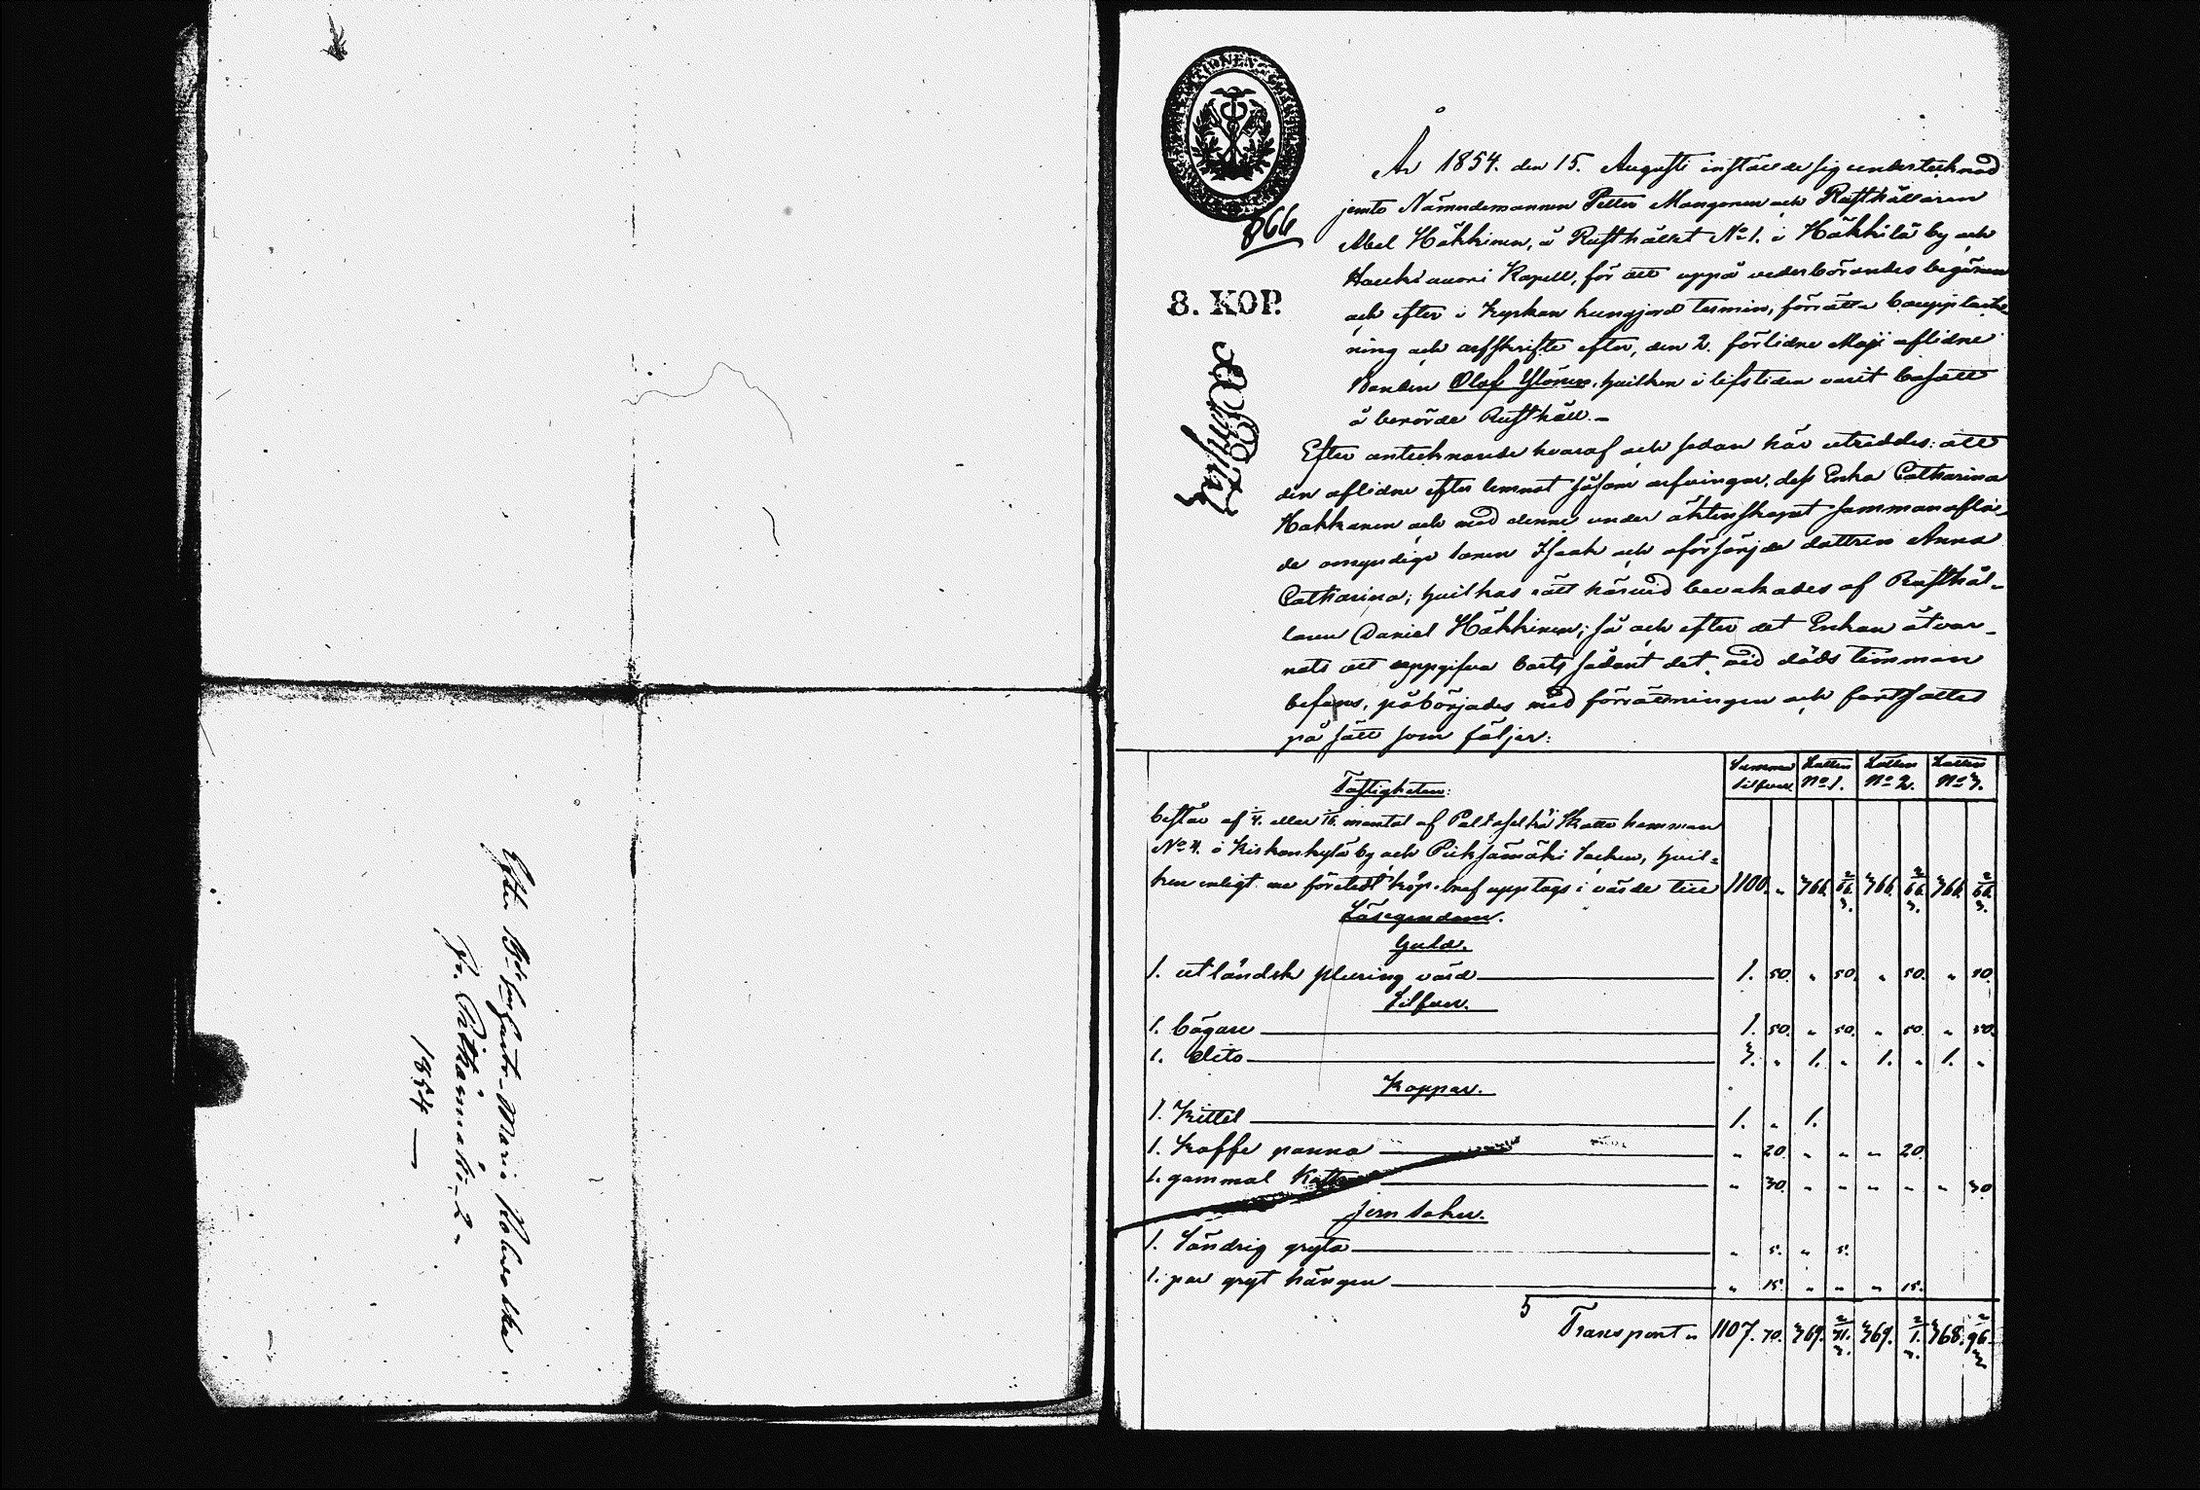 Efter Bd: hustr. Maria
fr. Pitkämäki. 2.
1854 —
866
8. KOP.
År 1854. den 15. Augusti instälde sig undertecknad
jemte Nämndemannen Petter Manganen och Rusthållaren
Abel Häkkinen, å Rusthållet No 1. i Häkkilä by och
Haukivuori Kapell, för att uppå vederbörandes begäran
och efter i Kyrkan kungjord termin, förrätta bouppteck-
ning och arfskifte efter, den 2. förlidne Maji aflidne
Bonden Olof Ylönen, hvilken i lifstiden varit bosatt
å berörde Rusthåll. –
Efter antecknande hvaraf och sedan här utreddes: att
den aflidne efterlemnat såsom arfvingar, dess Enka Catharina
Hakkanen och med denne under äktenskapet sammanaflа-
de omyndige sonen Isaak och oförsörjde dottren Anna
Catharina; hvilkas rätt härvid bevakades af Rusthål-
laren Daniel Häkkinen; så och efter det Enkan åtvar-
nats att uppgifva boets sådant det vid döds timman
befans, påbörjades med förrättningen och fortsattes
på sätt som följer:
Summa Silfver Lotten No 1. Lotten No 2. Lotten No 3.
Fastigheten:
består af 1/4. eller 1/16. mantal af Skatte hemman
No 4. i Kiskonkylä by och Pieksämäki Socken, hvil-
ken enligt nu företedt köpebref upptogs i värde till 1100. „ 366. 66 2/3. 366. 66 2/3. 366. 66 2/3.
Lösegendom.
Guld.
1. utländsk plussring värd 1. 50. „ 50. „ 50. „ 50.
Silfver.
1. bägare 1. 50. „ 50. „ 50. „ 50.
1. dito 3. „ 1. „ 1. „ 1. „
Koppar.
1. Kittel 1. „ 1.
1. Kaffe panna „ 20. „ „ „ 20.
1. gammal Kittel „ 30. „ „ „ „ „ 30.
Jern saker.
1. Söndrig gryta „ 5. „ 5.
1. par gryt hängen „ 15. „ „ „ 15.
Transport „ 1107. 70. 369. 71 2/3. 369. 1 2/3. 368. 96 2/3.